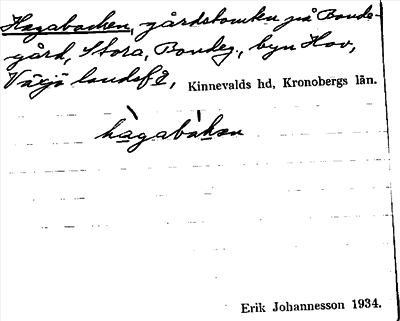 Hagabacken, gårdstomten på Bonde-
gård, Stora, Bondeg., byn Hov,
Växjö landsf 2, Kinnevalds hd, Kronobergs län.
hàgabàkən
Erik Johannesson 1934.